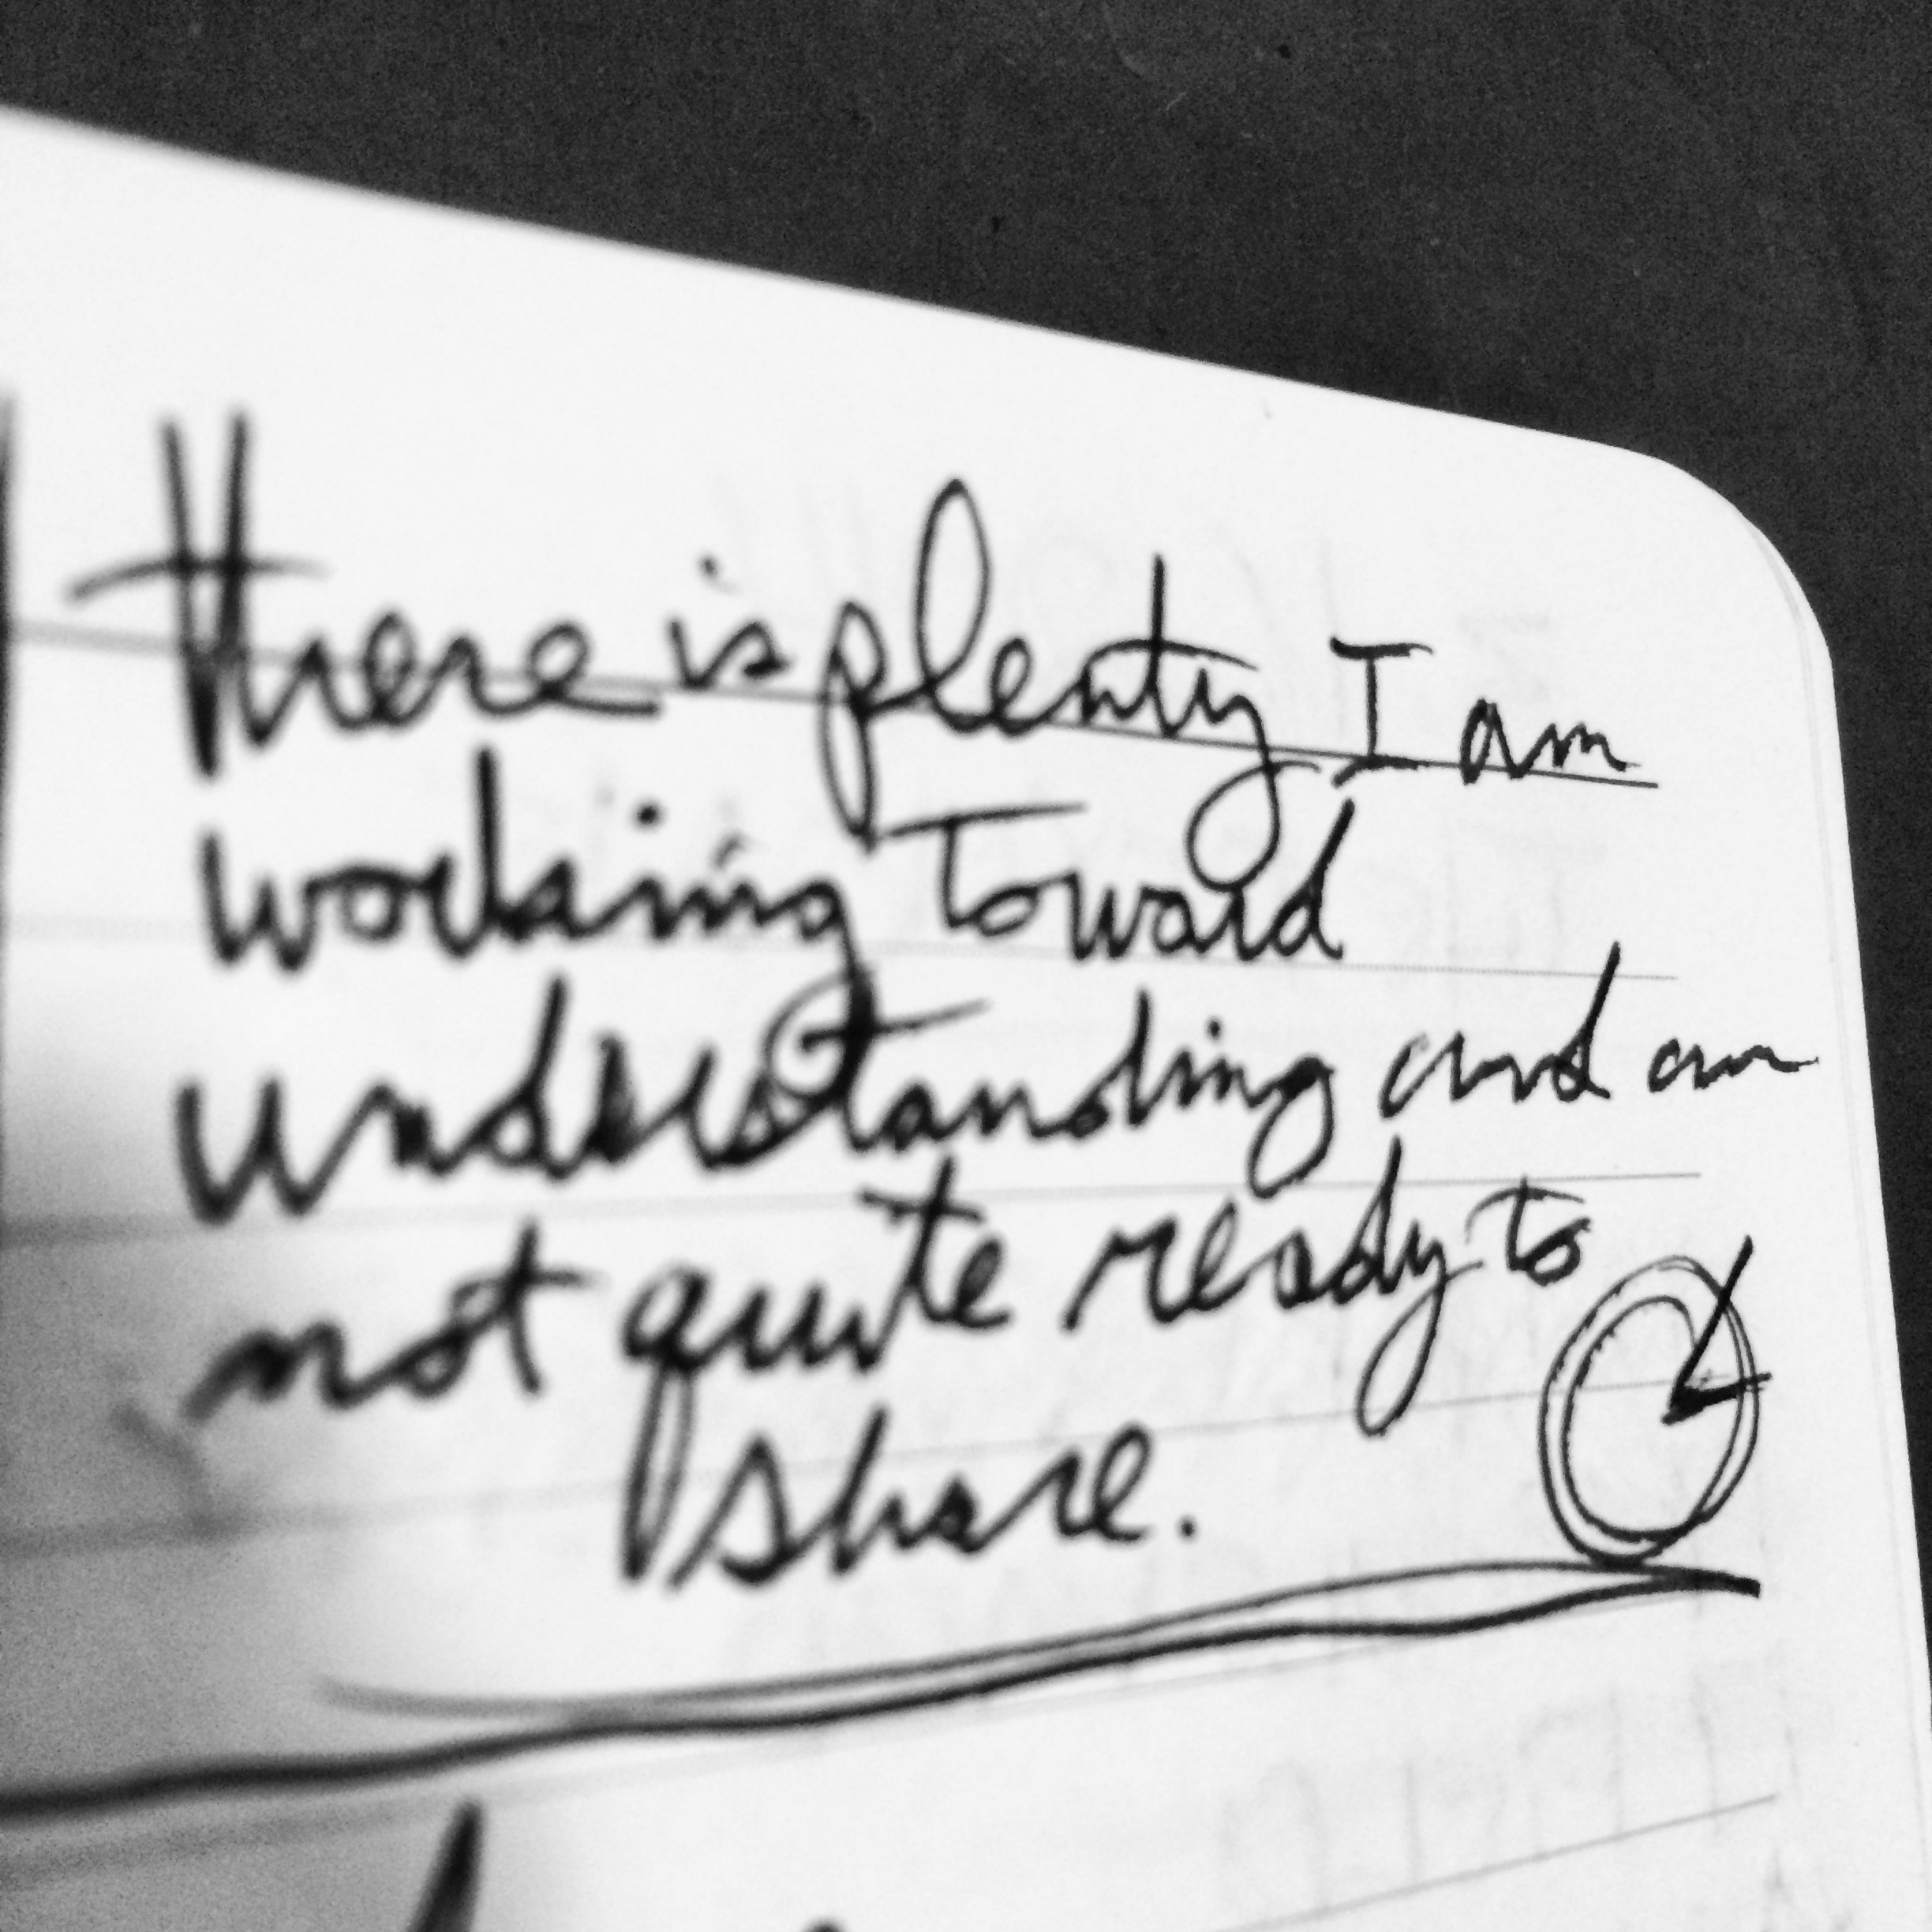 There is plenty I am
working toward
understanding and am
not quite ready to
share.